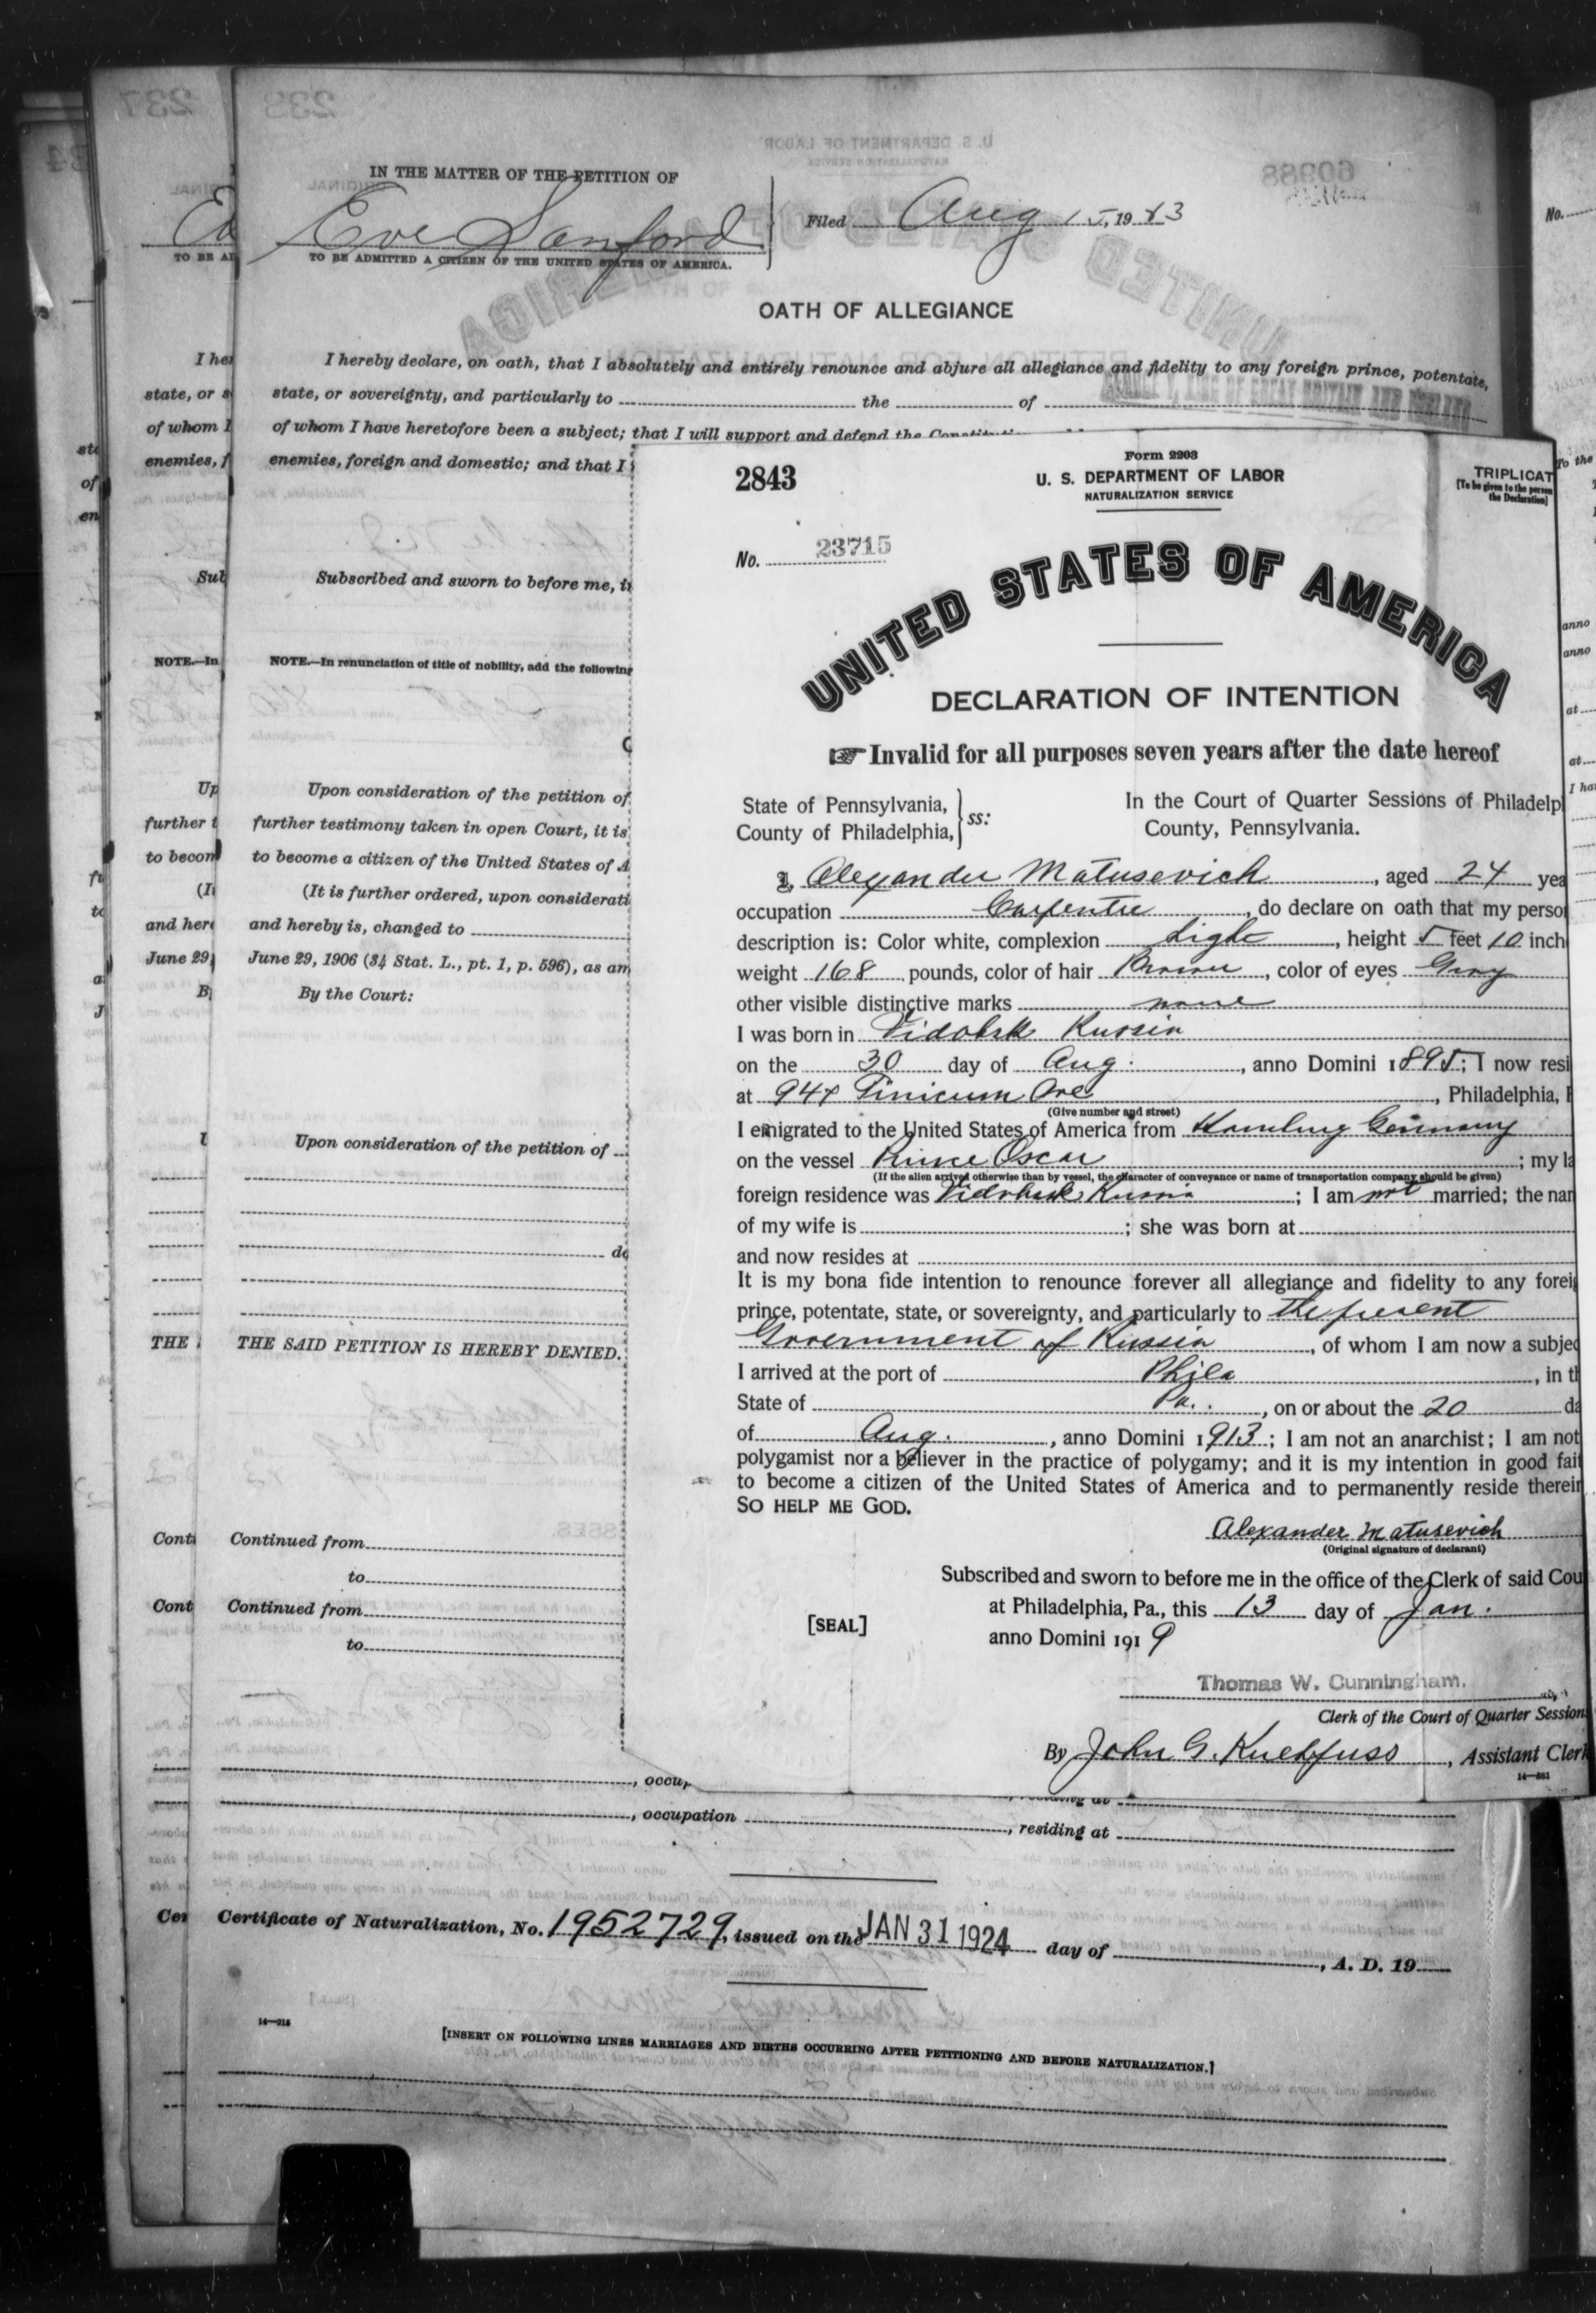 IN THE MATTER OF THE PETITION OF
Eve Sanford
TO BE ADMITTED A CITIZEN OF THE UNITED STATES OF AMERICA.
Filed Aug 15, 1923
OATH OF ALLEGIANCE
I hereby declare, on oath, that I absolutely and entirely renounce and abjure all allegiance and fidelity to any foreign prince, potentate,
state, or sovereignty, and particularly to the of
of whom I have heretofore been a subject; that I will support and defend the
enemies, foreign and domestic; and that I
Subscribed and sworn to before me,
NOTE.—In renunciation of title of nobility, add the following
Upon consideration of the petition of
further testimony taken in open Court, it is
to become a citizen of the United States of A
(It is further ordered, upon considerati
and hereby is, changed to
June 29, 1906 (34 Stat. L., pt. 1, p. 596), as am
By the Court:
Upon consideration of the petition of
THE SAID PETITION IS HEREBY DENIED.
Continued from
to
Continued from
to
2843
Form 2203
U. S. DEPARTMENT OF LABOR
NATURALIZATION SERVICE
TRIPLICAT
[To be given to the person
the Declaration]
No. 23715
UNITED STATES OF AMERICA
DECLARATION OF INTENTION
☞ Invalid for all purposes seven years after the date hereof
State of Pennsylvania,
County of Philadelphia, ss:
In the Court of Quarter Sessions of Philadelp
County, Pennsylvania.
I, Alexander Matusevich, aged 24 yea
occupation Carpenter, do declare on oath that my perso
description is: Color white, complexion Light, height 5 feet 10 inch
weight 168 pounds, color of hair Brown, color of eyes Gray
other visible distinctive marks none
I was born in Vidobsk Russia
on the 30 day of Aug., anno Domini 1895; I now resi
at 944 Tinicum Ave, Philadelphia, P
(Give number and street)
I emigrated to the United States of America from Hamburg Germany
on the vessel Prince Oscar; my la
(If the alien arrived otherwise than by vessel, the character of conveyance or name of transportation company should be given)
foreign residence was Vidobsk Russia; I am not married; the nam
of my wife is; she was born at
and now resides at
It is my bona fide intention to renounce forever all allegiance and fidelity to any foreig
prince, potentate, state, or sovereignty, and particularly to the present
Government of Russia, of whom I am now a subjec
I arrived at the port of Phila, in th
State of Pa., on or about the 20 da
of Aug., anno Domini 1913; I am not an anarchist; I am not
polygamist nor a believer in the practice of polygamy; and it is my intention in good fait
to become a citizen of the United States of America and to permanently reside therein
SO HELP ME GOD.
Alexander Matusevich
(Original signature of declarant)
Subscribed and sworn to before me in the office of the Clerk of said Cou
at Philadelphia, Pa., this 13 day of Jan.
[SEAL] anno Domini 1919
Thomas W. Cunningham.
Clerk of the Court of Quarter Session
By John G. Kuehfuss, Assistant Clerk
14—381
, occup
, occupation , residing at
Certificate of Naturalization, No. 1952729, issued on the JAN 31 1924 day of , A. D. 19
14—218
[INSERT ON FOLLOWING LINES MARRIAGES AND BIRTHS OCCURRING AFTER PETITIONING AND BEFORE NATURALIZATION.]